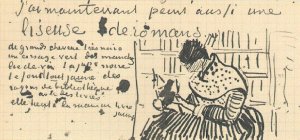 J'ai maintenant peint aussi une
liseuse de romans
de grands cheveux très noirs
un corsage vert des manches
lie de vin la jupe noire
le fond tout jaune des
rayons de bibliothèque
avec des livres
elle tient en main un livre
jaune